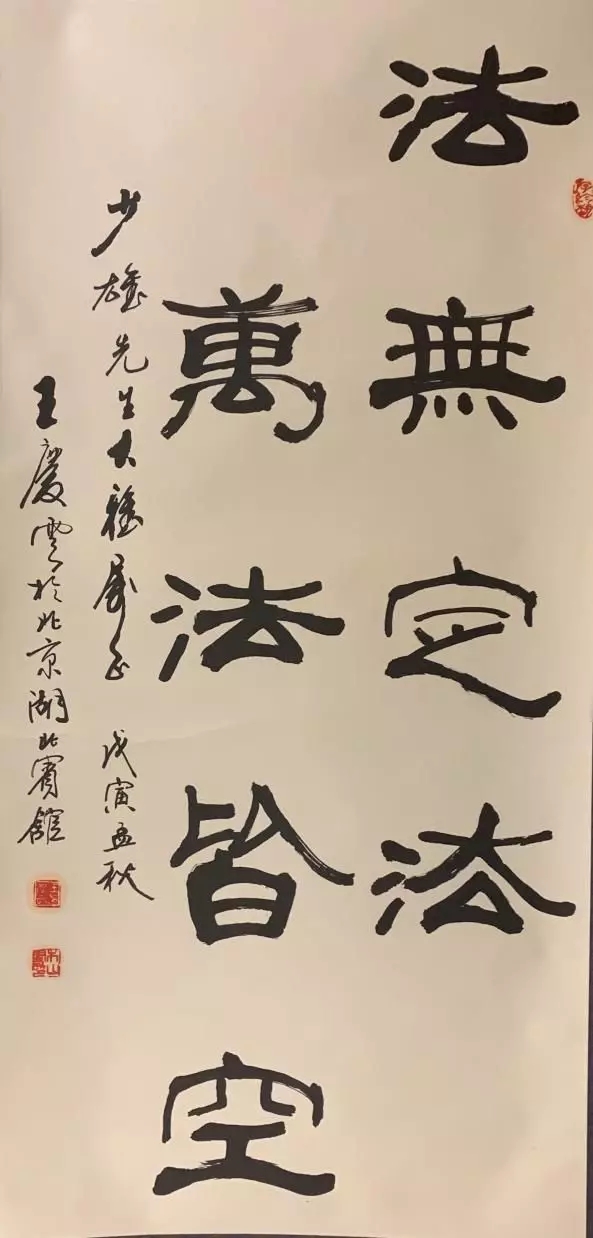 法無定法
萬法皆空
少雄先生大雅屬正 戊寅孟秋
王慶雲於北京湖北賓館